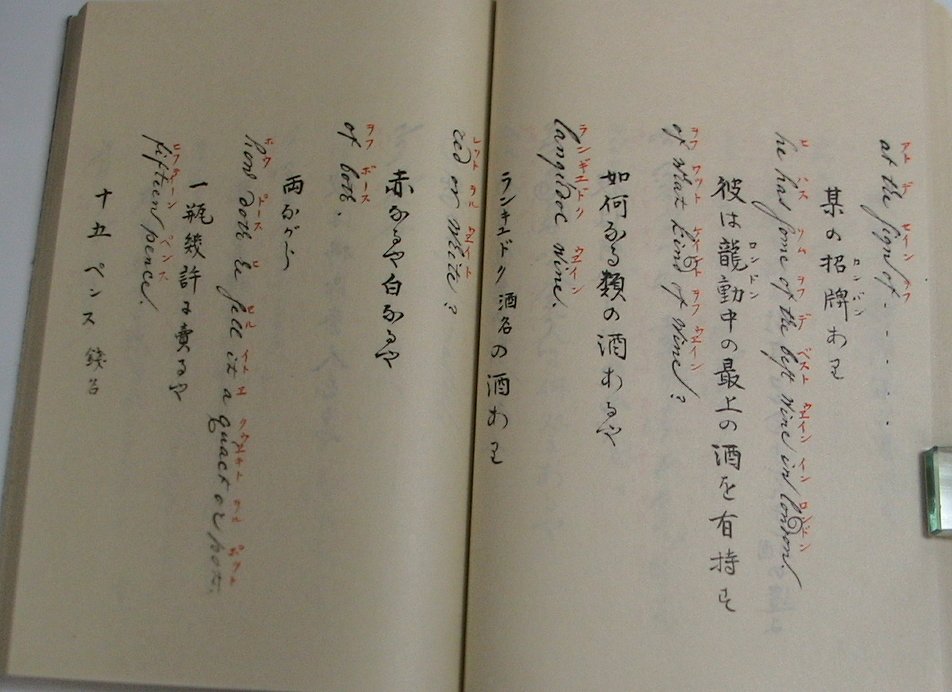 アト デ セイン ヲフ
at the sign of . . . . .
某の招牌あり
ロンバン
ヒ ハス ソム ヲフ デ ベスト ウエイン イン ロンドン
he has some of the best wine in london.
彼は龍動中の最上の酒を有持せす
ロンドン
ヲフ ワット ケイント ヲフ ウエイン
of what kind of wine?
如何なる類の酒あるや
ランギエドク ウエイン
langidoc wine.
ランキエドク酒名の酒あり
レット ヲル ウエイト
red or wite?
赤なるや白なるや
ヲフ ボース
of both.
両ながら
ホウ ドース ヒ セル イト エ クウアルト ヲル ポット
how doth he sell it a quart or pott.
一瓶幾許に賣るや
ヒフテーン ペンス
fifteen pence.
十五ペンス 錢名